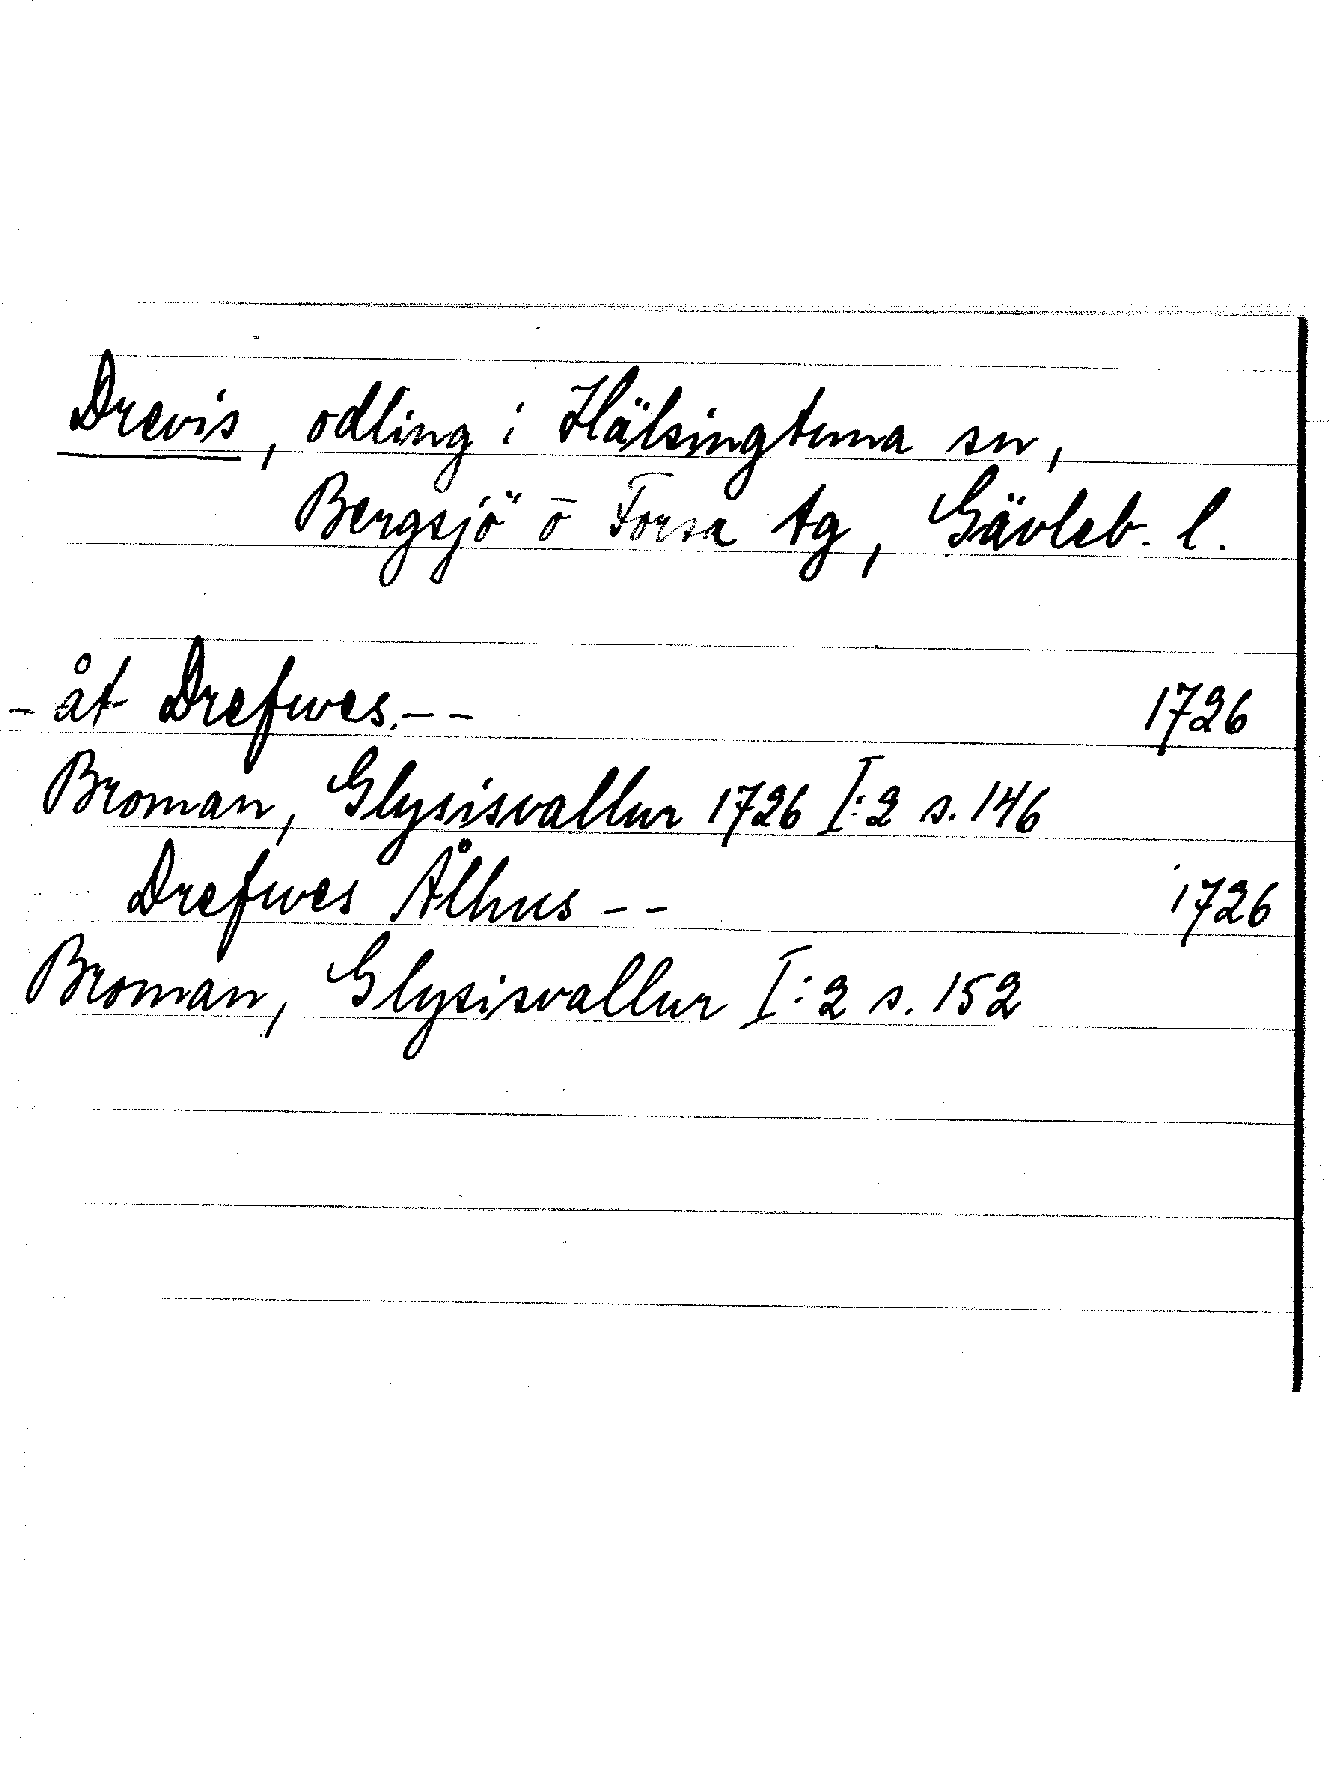 Drevis, odling i Hälsingtuna sn,
Bergsjö o Forsa tg, Gävleb. l.
- åt Drefwes. - - 1726
Broman, Glysisvallur 1726 I:2 s. 146
Drefwes Ålhus - - 1726
Broman, Glysisvallur I:2 s. 152